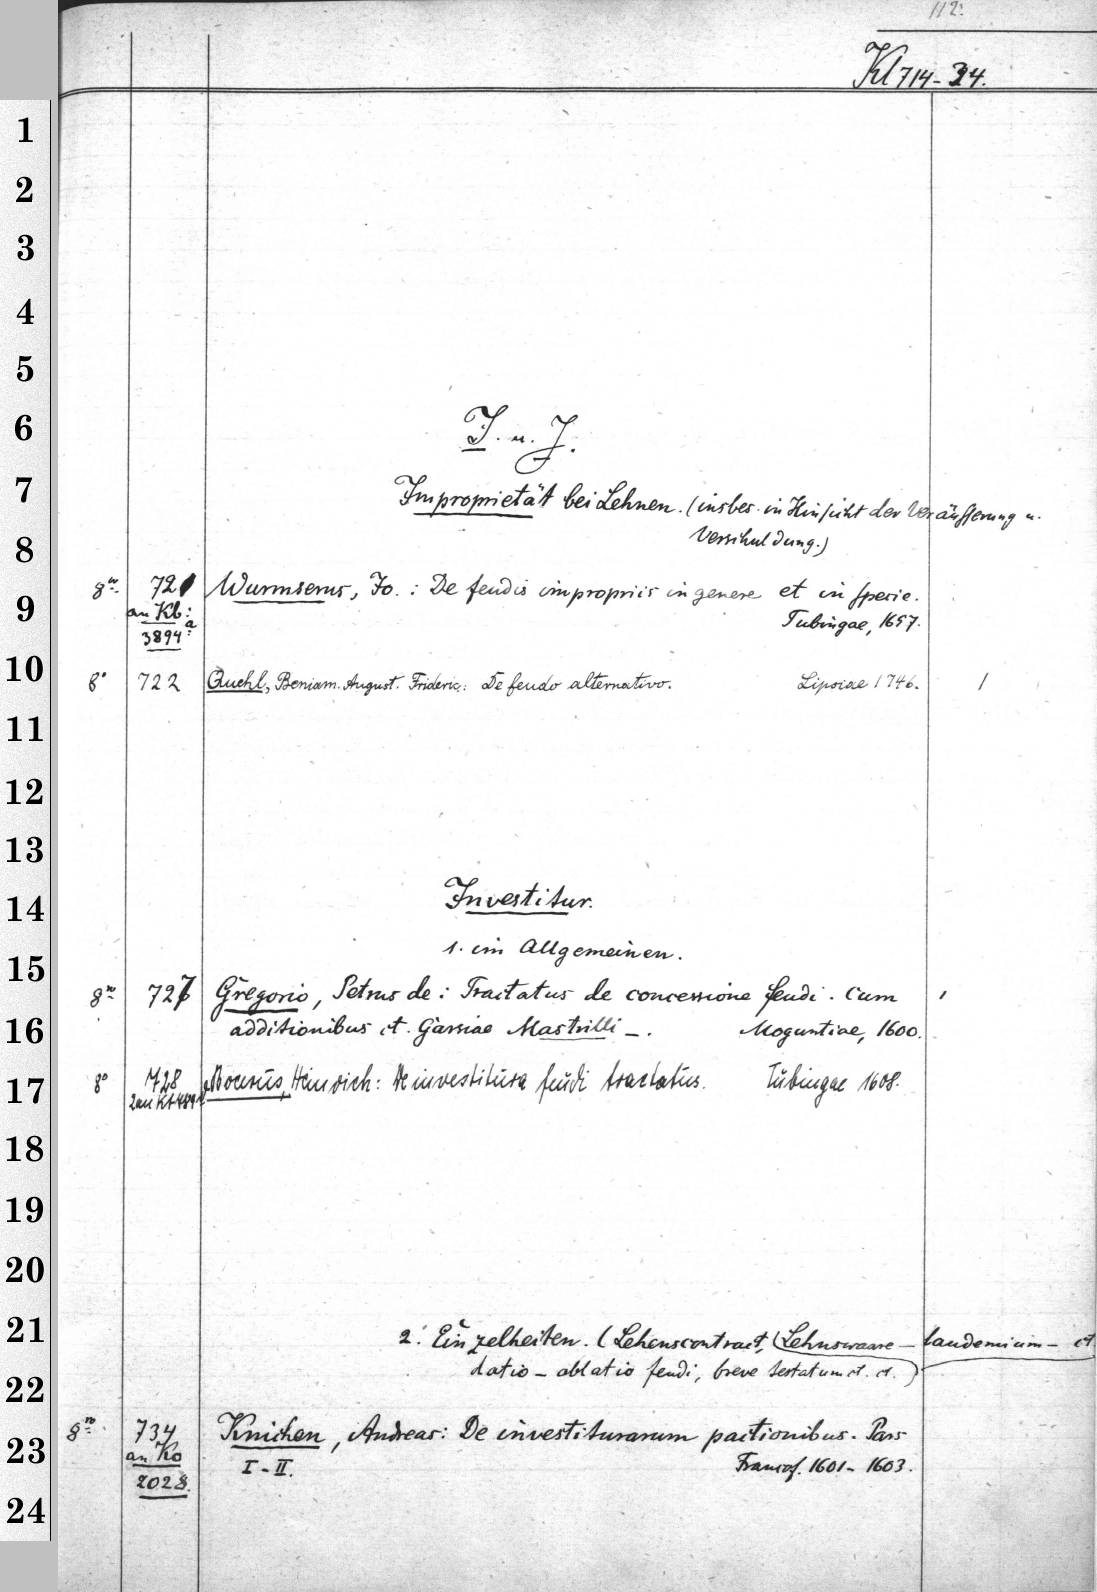 112.
Kl 714-34.
1
2
3
4
5
6
I. u. J.
7
Improprietät bei Lehnen. (insbes. in Hinsicht der Veräußerung u.
8
Verschuldung.)
8vo 721 Wurmserus, Jo.: De feudis impropriis in genere et in specie.
9
an Kb: Tubingae, 1657.
3894a
10
8° 722 Quehl, Beniam. August. Frideric.: De feudo alternativo. Lipsiae 1746. 1
11
12
13
14
Investitur.
15
1. im Allgemeinen.
8vo 727 Gregorio, Petrus de: Tractatus de concessione feudi. Cum
16
additionibus et. Garsiae Mastrilli —. Moguntiae, 1600.
17
8° 728 Bocerus, Heinrich: De investitura feudi tractatus. Tübingae 1608.
2 an Kt
18
19
20
21
2. Einzelheiten. (Lehenscontract, (Lehnswaare – laudemium – et
22
datio – ablatio feudi, breve testatum et. et.)
8vo 734 Knichen, Andreas: De investiturarum pactionibus. Pars
23
an Ko I – II. Francof. 1601 – 1603.
2028.
24